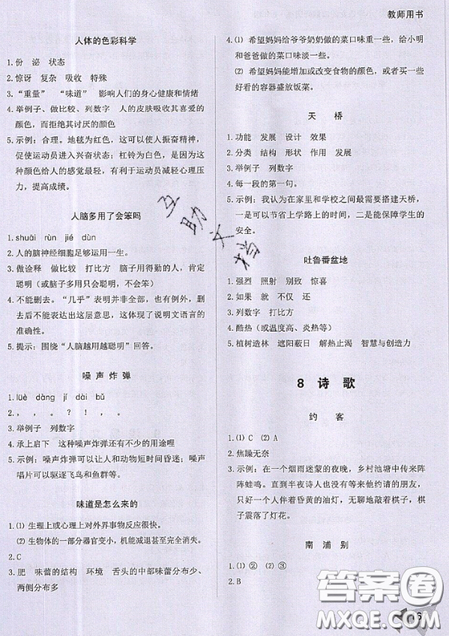 教师用书
人体的色彩科学
1. 份 泌 状态
2. 惊讶 复杂 吸收 特殊
3. “重量” “味道” 影响人们的身心健康和情绪
4. 举例子、做比较、列数字 人的皮肤吸收其喜爱的
颜色，而拒绝其讨厌的颜色
5. 示例：合理。地毯为红色，这可以使人振奋精神，
促使运动员进入兴奋状态；杠铃为白色，是因为
这种颜色给人的感觉最轻，有利于运动员减轻心理压
力，提高成绩。
人脑多用了会笨吗
1. shuāi rùn jié dùn
2. 人的脑神经细胞足够运用一生。
3. 做诠释 做比较 打比方 脑子用得勤的人，肯定
聪明（或脑子多用只会聪明，不会笨）
4. 不能删去。“几乎”表明并非全部，也有例外，删
去后不能表达出这层意思，这体现了说明文语言的
准确性。
5. 提示：围绕“人脑越用越聪明”回答。
噪声炸弹
1. lüè dàng jī dài bǔ
2. ， 。 ， ？ ， ， ！
3. 举例子 列数字
4. 承上启下 这种噪声炸弹还有不少的用途哩
5. 示例：噪声可以让人和动物短时间昏迷；噪声
唱片可以驱逐飞鸟和鱼群等。
味道是怎么来的
1. ⑴ 生理上或心理上对外界事物反应很快。
⑵ 生物体的一部分器官变小，机能减退甚至完全消失。
2. C
3. 肥 味蕾的结构 环境 舌头的中部味蕾比较少、
两侧分布多
⑴ 希望妈妈给爷爷奶奶做的菜口味重一些，给小明
和爸爸做的菜口味淡一些。
⑵ 希望妈妈能增加或改变食物的颜色，或者买一些
好看的容器盛放饭菜。
天桥
1. 功能 发展 设计 效果
2. 分类 结构 形状 作用 发展
3. 举例子 列数字
4. 每一段的第一句。
5. 示例：我认为在家里和学校之间最需要搭建天桥，
一是可以节省上学路上的时间，二是能保障学生的
安全。
吐鲁番盆地
1. 强烈 照射 别致 惊喜
2. 如果 就 不仅 还
3. 列数字 打比方
4. 酷热（或温度高、炎热等）
5. 植树造林 遮阳蔽日 解热止渴 智慧与创造力
8 诗歌
约客
1. ⑴ ② ⑵ A
2. 焦躁无奈
3. 示例：在一个烟雨迷蒙的夜晚，乡村池塘中传来阵
阵蛙鸣。直到半夜诗人也没有等来他邀约的朋友，
只好一个人伴着昏黄的油灯，无聊地敲着棋子，棋
子震落了灯花。
南浦别
1. ⑴ ② ⑵ ③
2. B
互助文档
答案圈
MXQE.COM